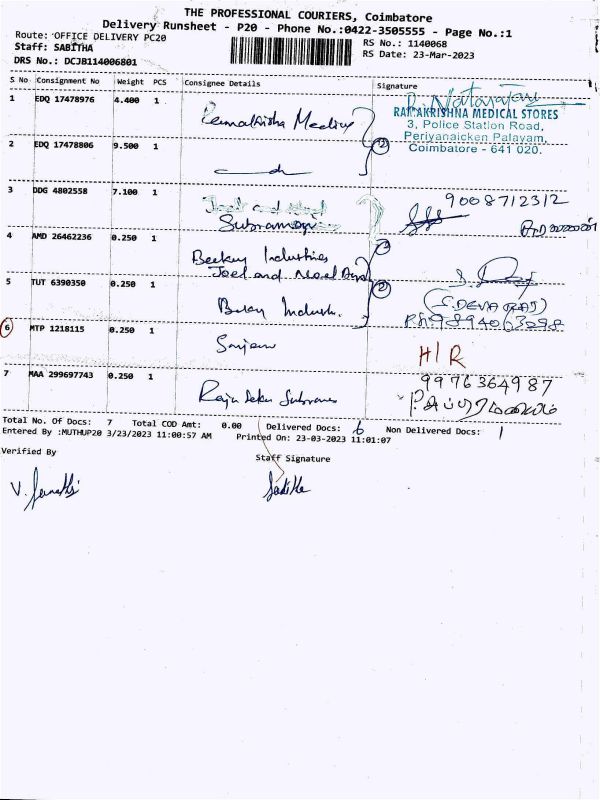 THE PROFESSIONAL COURIERS, Coimbatore
Delivery Runsheet - P20 - Phone No.:0422-3505555 - Page No.:1
Route: OFFICE DELIVERY PC20
RS No.: 1140068
Staff: SABITHA
RS Date: 23-Mar-2023
DRS No.: DCJB114006801
S No Consignment No Weight PCS Consignee Details Signature
1 EDQ 17478976 4.400 1
RAMAKRISHNA MEDICAL STORES
3, Police Station Road,
Periyanaicken Palayam,
Coimbatore - 641 020.
2 EDQ 17478806 9.500 1 (2)
3 DDG 4802558 7.100 1 9008712312
4 AMD 26462236 0.250 1 Industries
5 TUT 6390350 0.250 1 (2)
(S.DEVARAJ)
6 MTP 1218115 0.250 1 H/R
7 MAA 299697743 0.250 1 9976364987
Total No. Of Docs: 7 Total COD Amt: 0.00 Delivered Docs: 6 Non Delivered Docs: 1
Entered By :MUTHUP20 3/23/2023 11:00:57 AM Printed On: 23-03-2023 11:01:07
Verified By Staff Signature